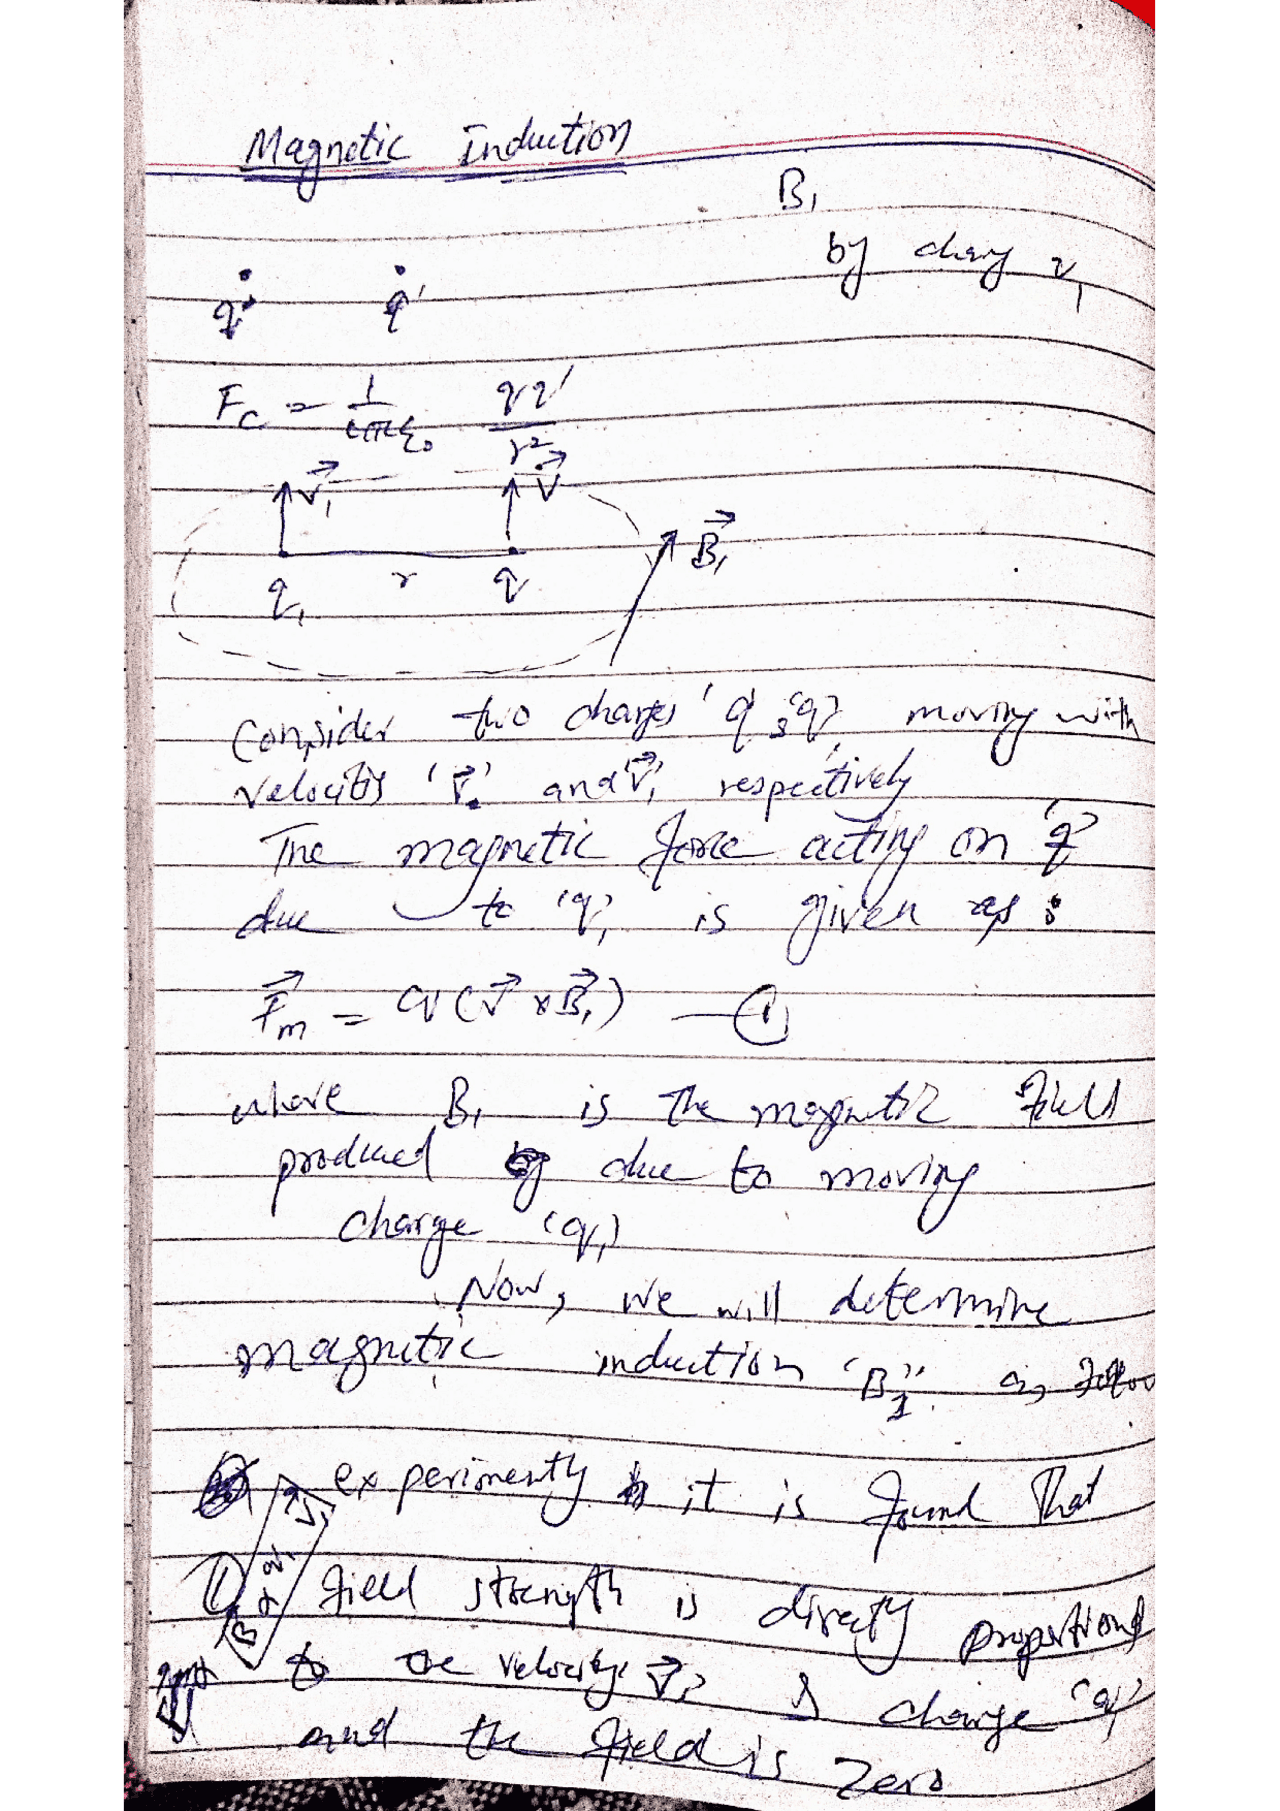 Magnetic Induction
B₁
by charg q₁
q q'
F_C = 1/4πε₀ qq'/r²
V⃗₁ V⃗
B⃗₁
q₁ r q
Consider two charges 'q' & 'q₁' moving with
velocitis 'V⃗' and 'V⃗₁' respectively
The magnetic force acting on 'q'
due to 'q₁' is given as :
F⃗m = q (V⃗ × B⃗₁) — ①
where B₁ is the magnetic field
produced by due to moving
charge (q₁)
Now, we will determine
magnetic induction 'B₁' as
experimently it is found that
① field strength is directy proportional
B⃗ ∝ q₁ V⃗₁
to the velocity V⃗₁ & charge 'q₁'
and the field is zero